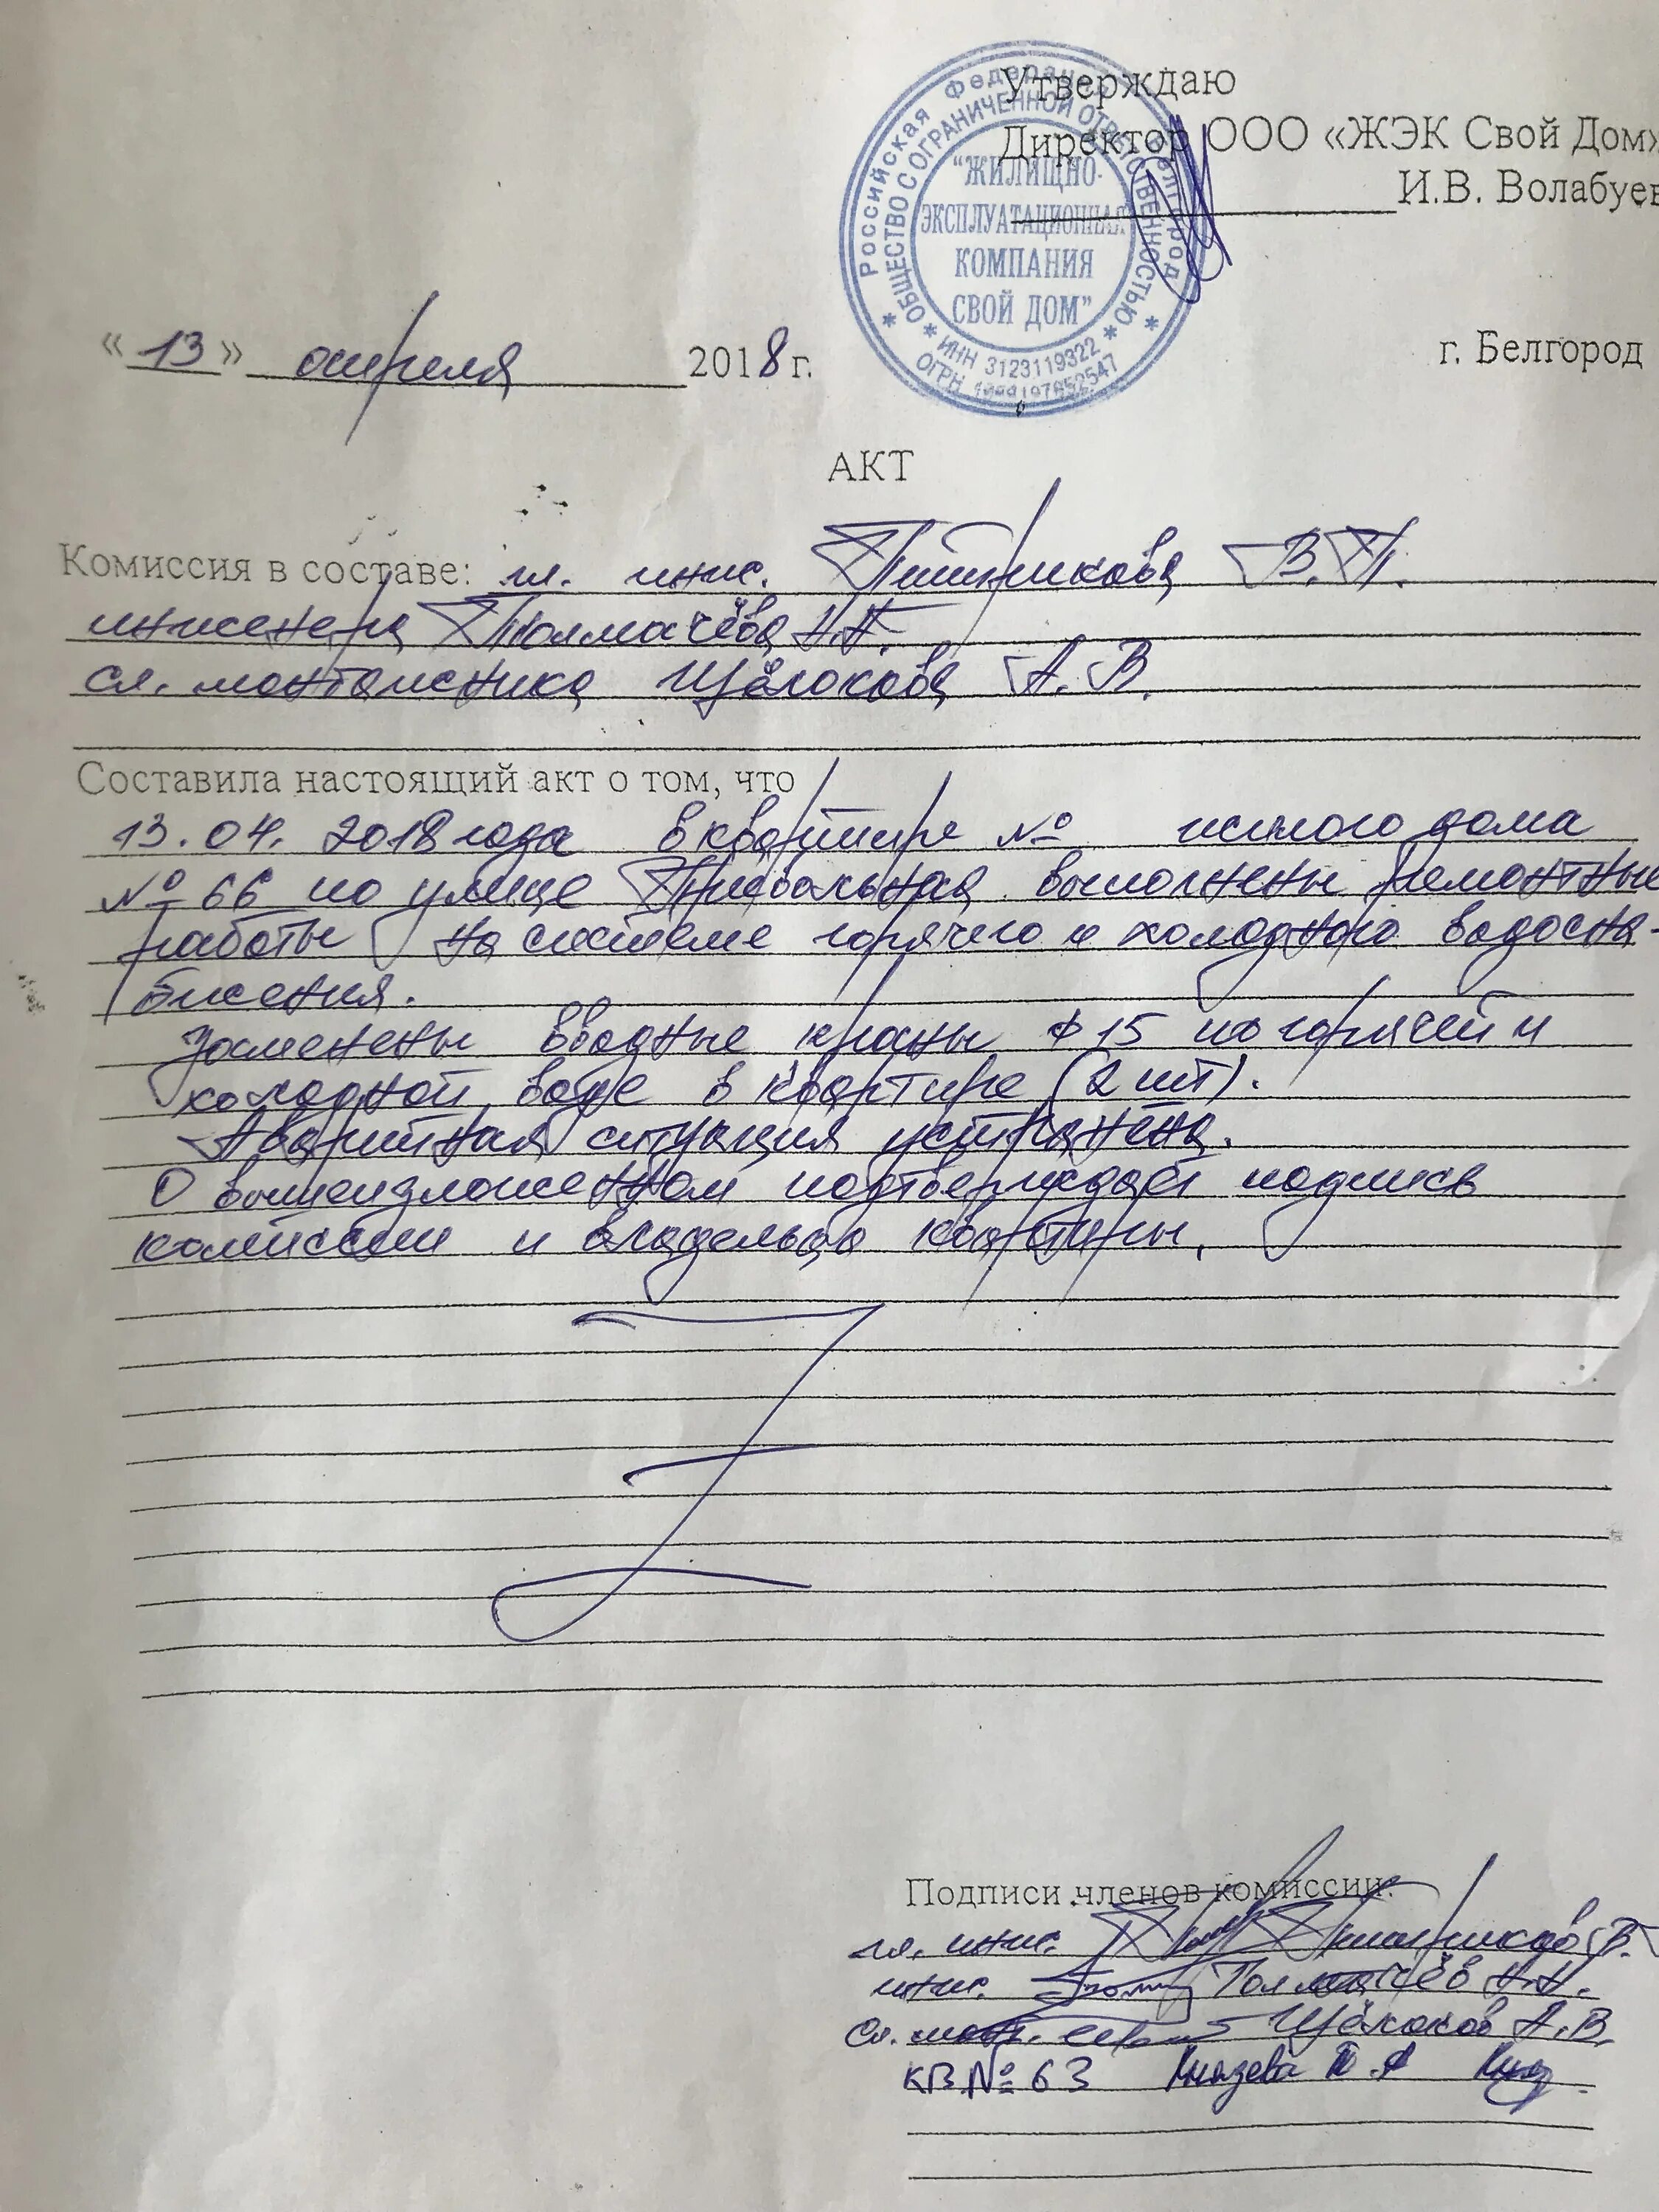 Утверждаю
Директор ООО «ЖЭК Свой Дом»
И.В. Волабуев
Российская Федерация г. Белгород
ОБЩЕСТВО С ОГРАНИЧЕННОЙ ОТВЕТСТВЕННОСТЬЮ
"ЖИЛИЩНО-
ЭКСПЛУАТАЦИОННАЯ
КОМПАНИЯ
СВОЙ ДОМ"
ИНН 3123119322
ОГРН
«13» апреля 2018 г.
г. Белгород
АКТ
Комиссия в составе: гл. инж. В.П.
инженера Толмачёва Н.Н.
сл. монтажника Щёлокова А.В.
Составила настоящий акт о том, что
13.04.2018 года в квартире № жилого дома
№ 66 по улице выполнены ремонтные
работы на системе горячего и холодного водосна-
бжения.
Заменены вводные краны ф 15 по горячей и
холодной воде в квартире (2 шт).
Аварийная ситуация устранена.
О вышеизложенном подтверждает подпись
комиссии и владельца квартиры.
Подписи членов комиссии:
гл. инж. В.
инж. Толмачёв Н.Н.
Сл. монт. Щёлоков А.В.
КВ. № 63 Князева